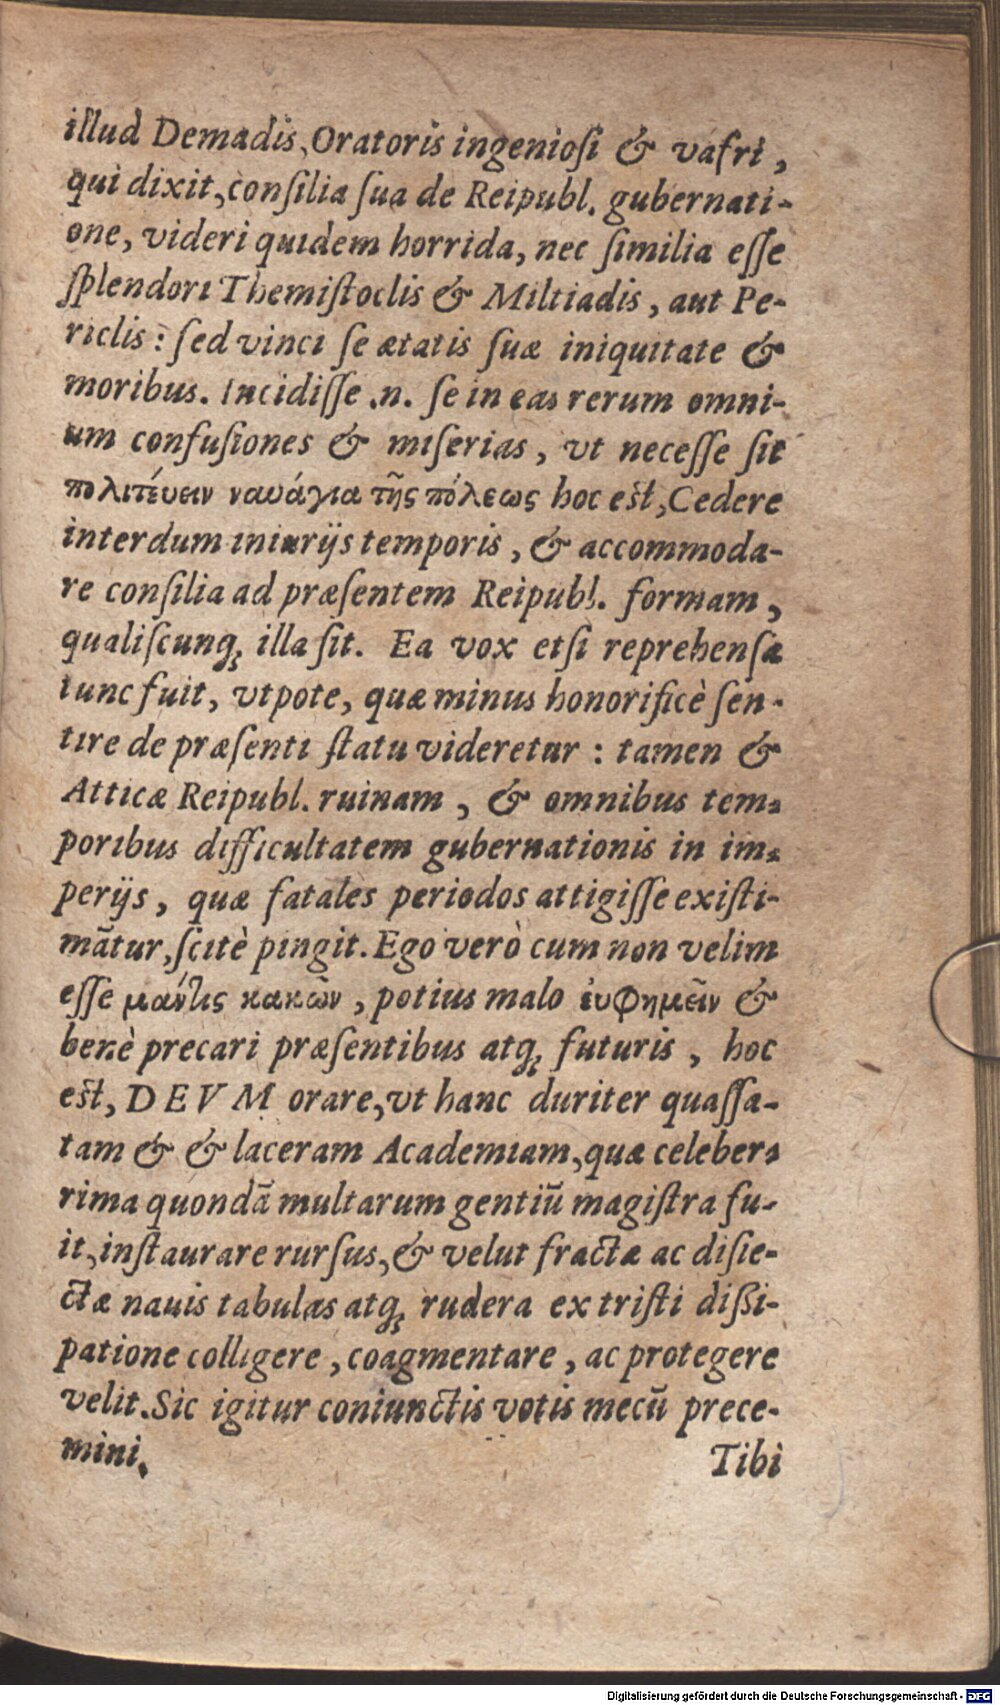 illud Demadis, Oratoris ingeniosi & vafri,
qui dixit, consilia sua de Reipubl. gubernati-
one, videri quidem horrida, nec similia esse
splendori Themistoclis & Miltiadis, aut Pe-
riclis: sed vinci se ætatis suæ iniquitate &
moribus. Incidisse .n. se in eas rerum omni-
um confusiones & miserias, vt necesse sit
πολιτέυειν ναυάγια τῆς πόλεως hoc est, Cedere
interdum iniurijs temporis, & accommoda-
re consilia ad præsentem Reipubl. formam,
qualiscunq; illa sit. Ea vox etsi reprehensa
tunc fuit, vtpote, quæ minus honorificè sen-
tire de præsenti statu videretur: tamen &
Atticæ Reipubl. ruinam, & omnibus tem-
poribus difficultatem gubernationis in im-
perijs, quæ fatales periodos attigisse existi-
mātur, scitè pingit. Ego verò cum non velim
esse μάντις κακῶν, potius malo ἐυφημεῖν &
benè precari præsentibus atq; futuris, hoc
est, DEVM orare, vt hanc duriter quassa-
tam & & laceram Academiam, quæ celeber-
rima quondā multarum gentiū magistra fu-
it, instaurare rursus, & velut fractæ ac disie-
ctæ nauis tabulas atq; rudera ex tristi dissi-
patione colligere, coagmentare, ac protegere
velit. Sic igitur coniunctis votis mecū prece-
mini.
Tibi
Digitalisierung gefördert durch die Deutsche Forschungsgemeinschaft - DFG